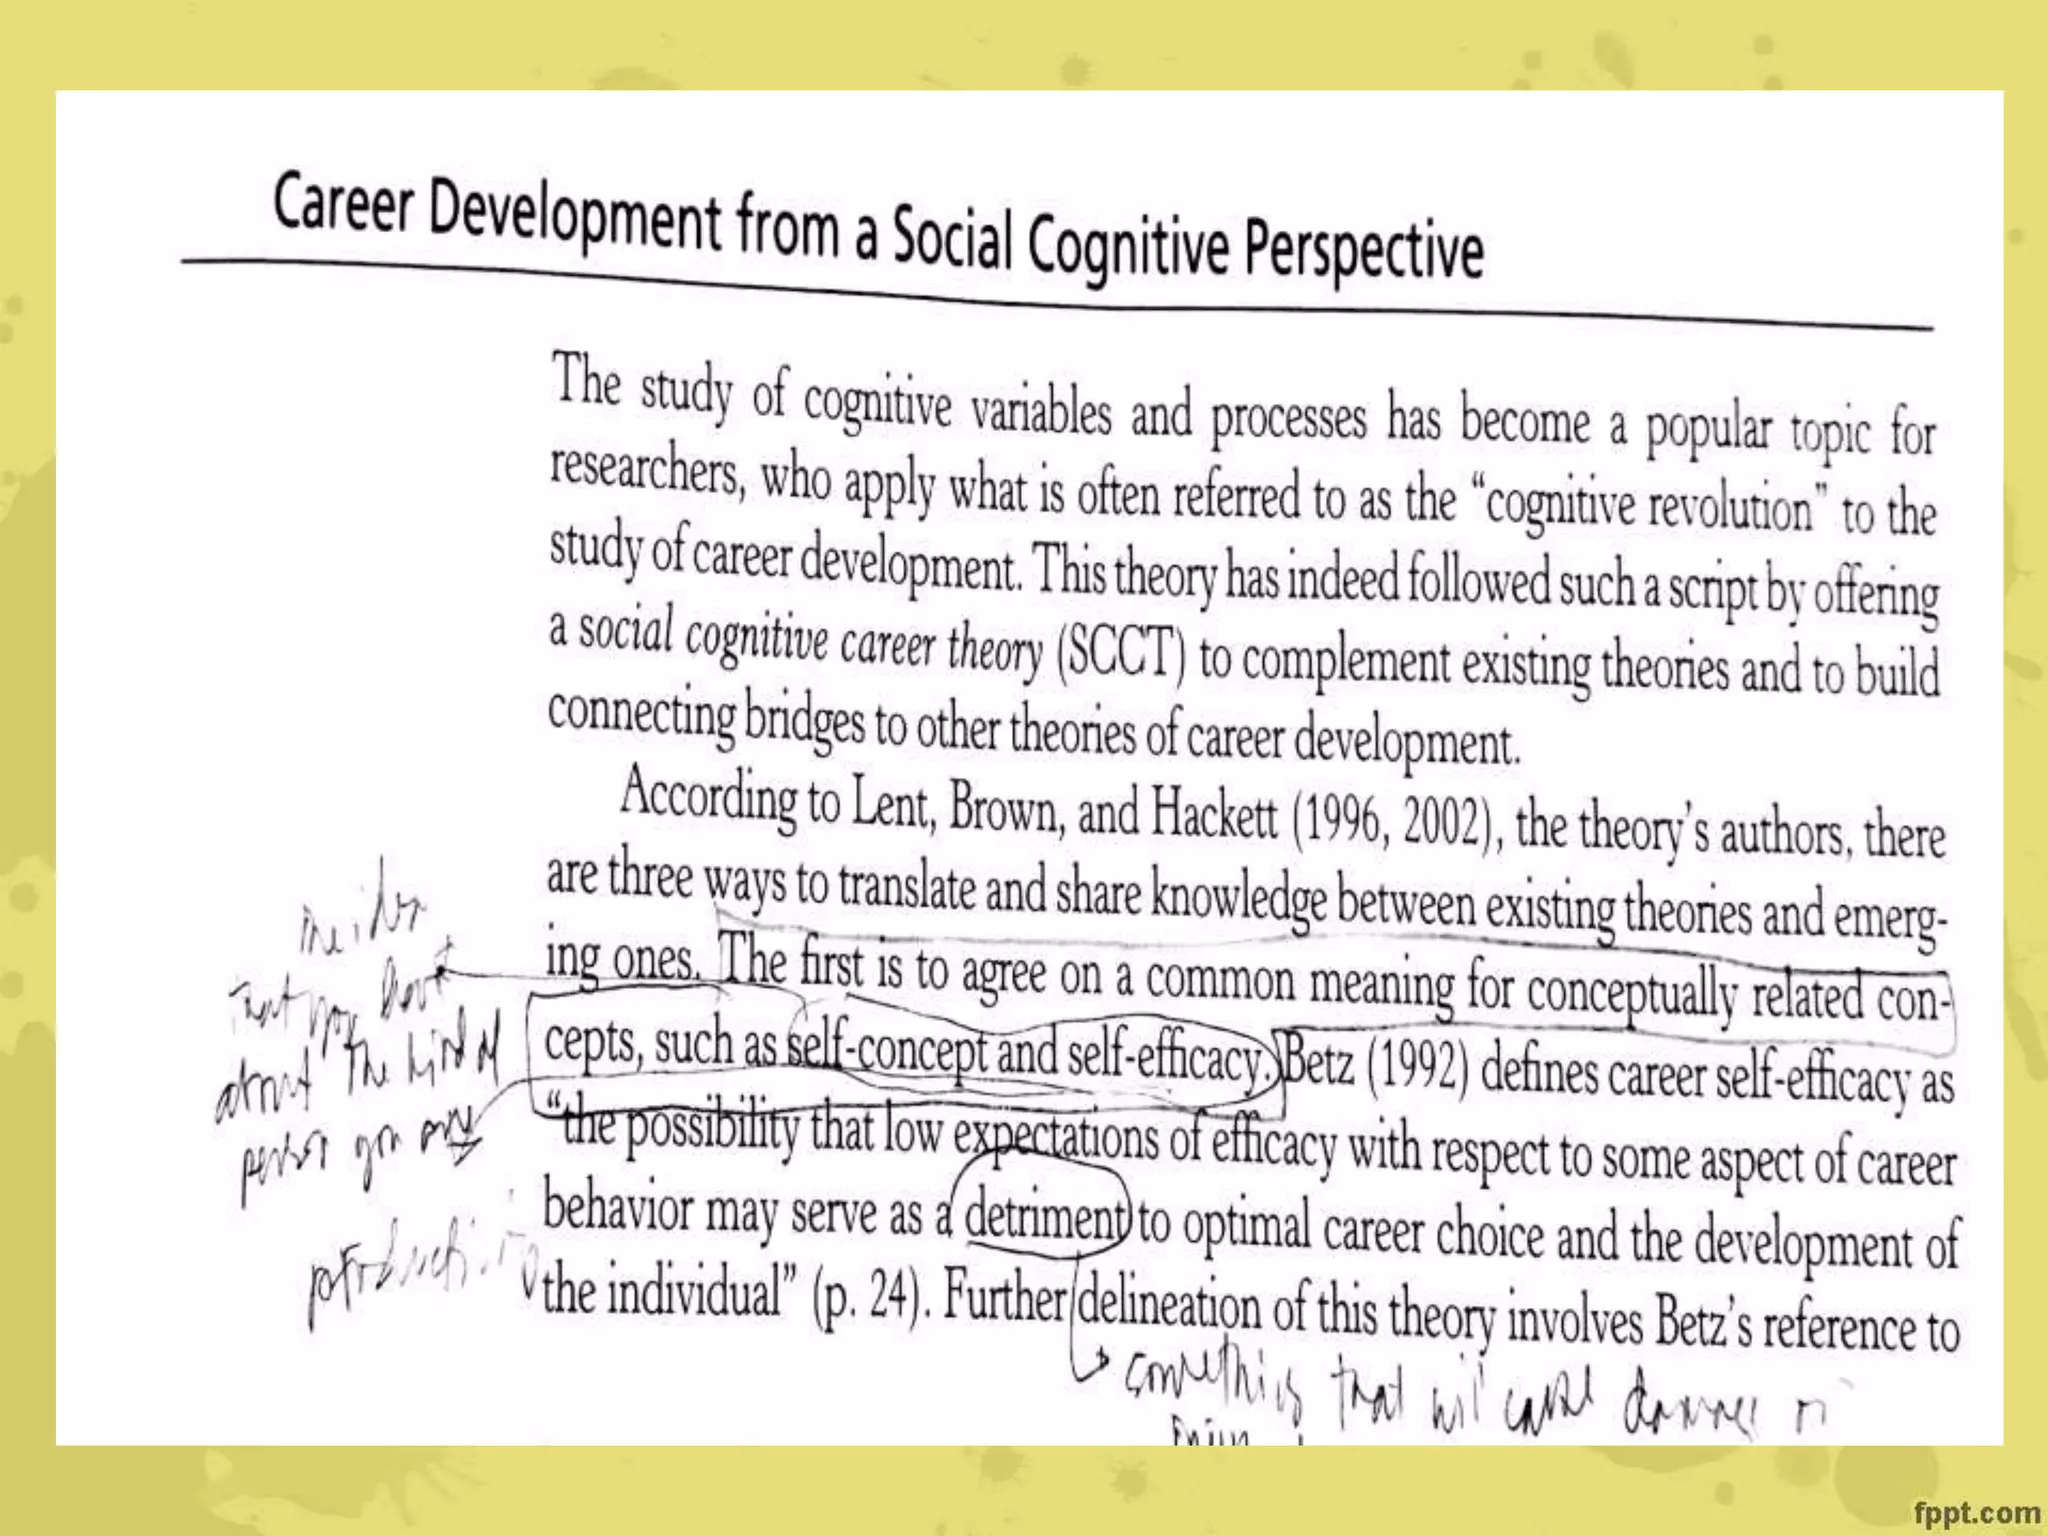 Career Development from a Social Cognitive Perspective
The study of cognitive variables and processes has become a popular topic for
researchers, who apply what is often referred to as the "cognitive revolution" to the
study of career development. This theory has indeed followed such a script by offering
a social cognitive career theory (SCCT) to complement existing theories and to build
connecting bridges to other theories of career development.
According to Lent, Brown, and Hackett (1996, 2002), the theory's authors, there
are three ways to translate and share knowledge between existing theories and emerg-
ing ones. The first is to agree on a common meaning for conceptually related con-
cepts, such as self-concept and self-efficacy. Betz (1992) defines career self-efficacy as
"the possibility that low expectations of efficacy with respect to some aspect of career
behavior may serve as a detriment to optimal career choice and the development of
the individual" (p. 24). Further delineation of this theory involves Betz's reference to
The idea
that you have
about the kind of
person you are
something that will cause damage or
fppt.com